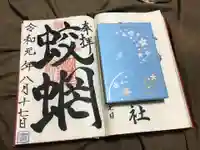 社
日
奉拝
蛟蝄
令和元年八月十七日